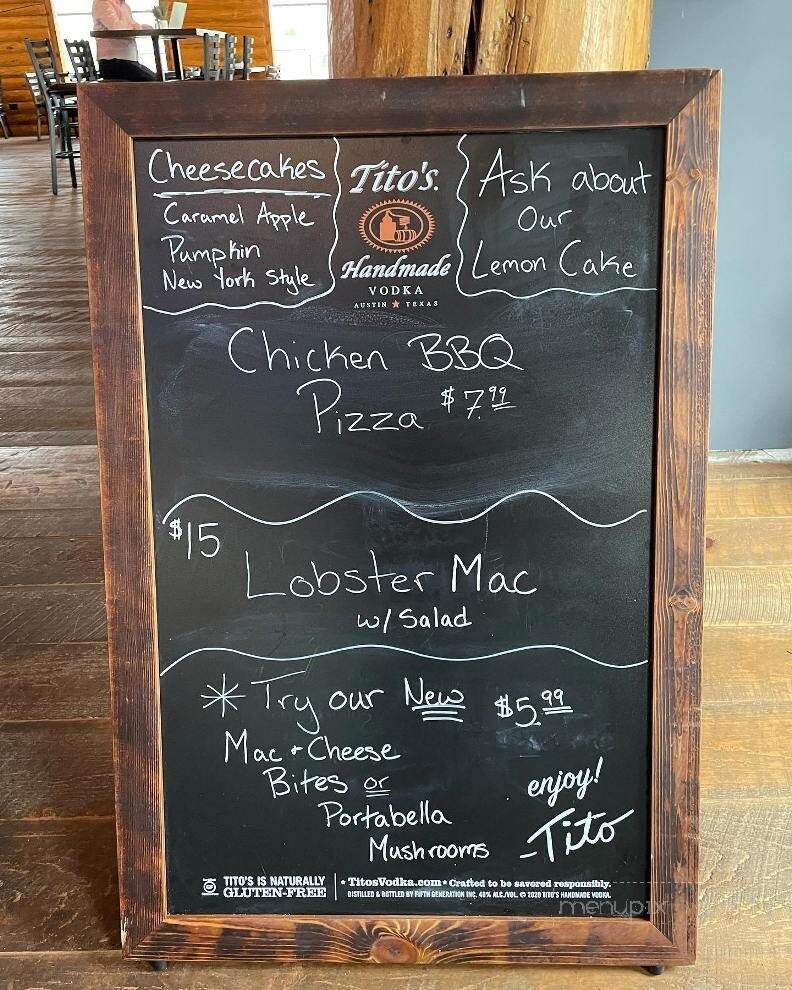 Cheesecakes
Caramel Apple
Pumpkin
New York Style
Tito's
Handmade
VODKA
AUSTIN ★ TEXAS
Ask about
Our
Lemon Cake
Chicken BBQ
Pizza $7.99
$15
Lobster Mac
w/ Salad
* Try our New $5.99
Mac + Cheese
Bites or
Portabella
Mushrooms
enjoy!
-Tito
TITO'S IS NATURALLY
GLUTEN-FREE
• TitosVodka.com • Crafted to be savored responsibly.
DISTILLED & BOTTLED BY FIFTH GENERATION INC. 40% ALC./VOL. © 2020 TITO'S HANDMADE VODKA.
menupix